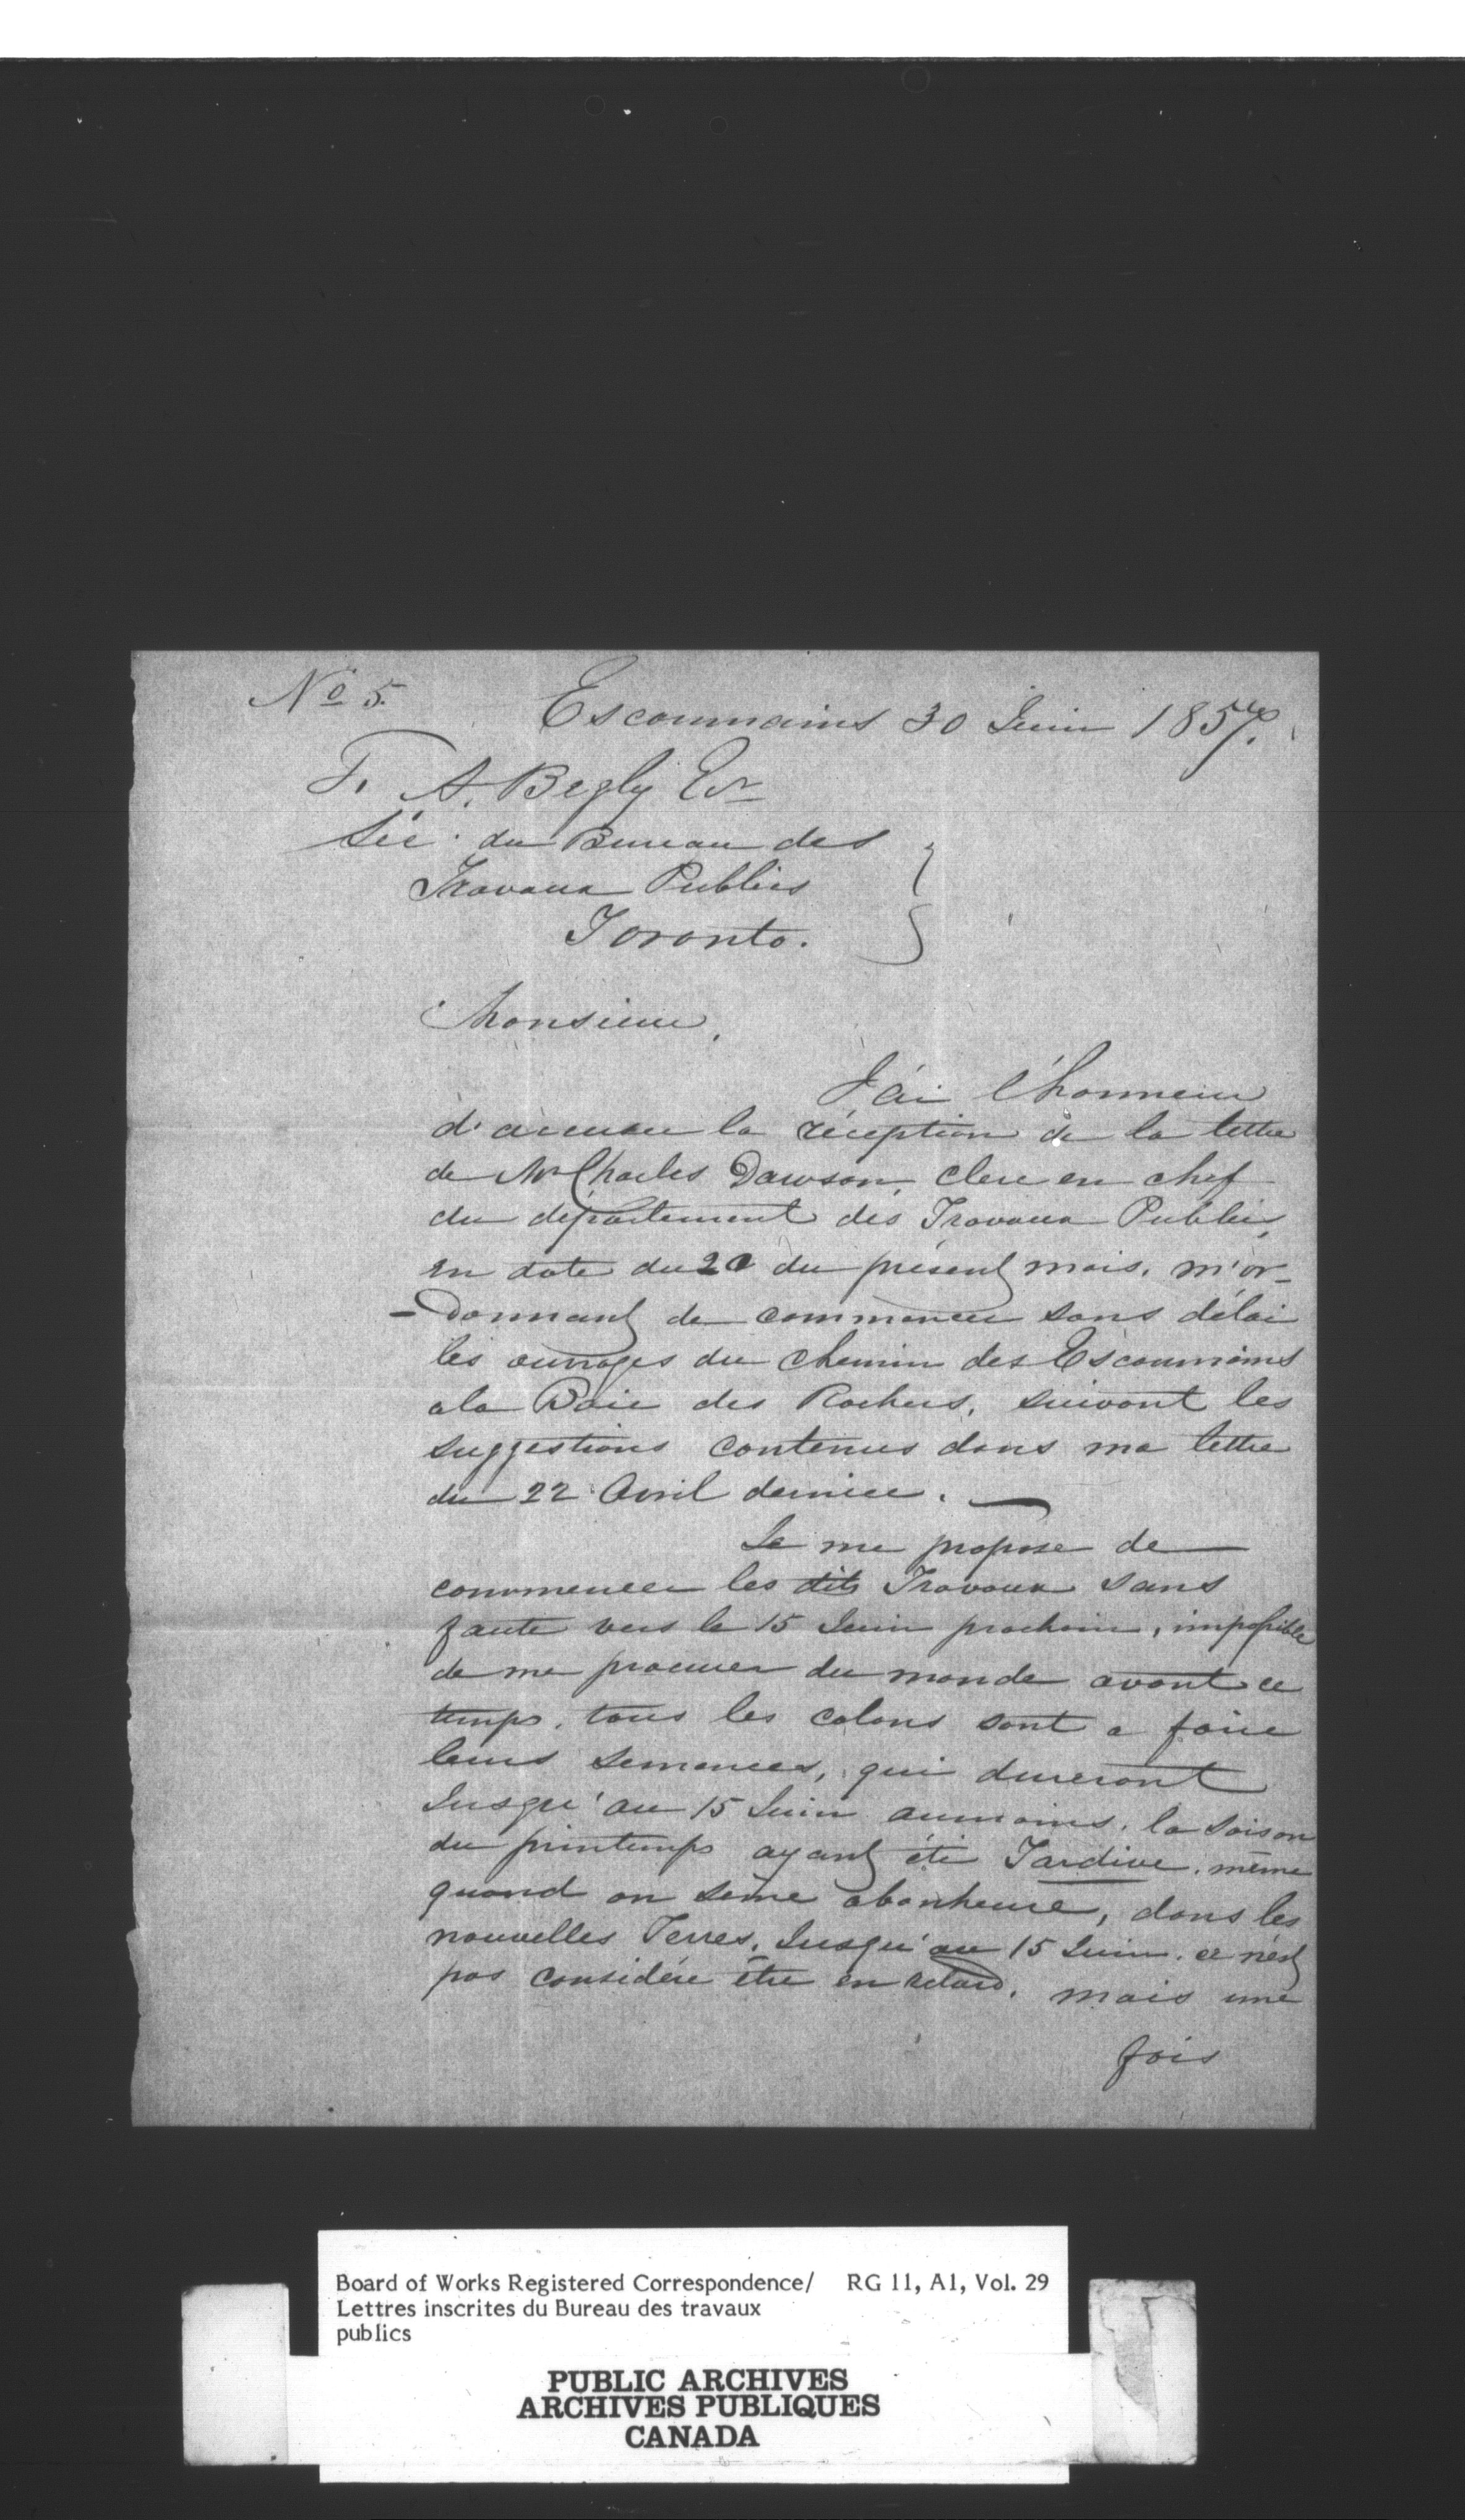 No 5.
Escoumains 30 Juin 1857.
T. A. Begly Esr
Séc. du Bureau des
Travaux Publics
Toronto.
Monsieur,
J'ai l'honneur
d'accuser la réception de la lettre
de Mr Charles Dawson, clerc en chef
du département des Travaux Publics,
en date du 20 du présent mois, m'or-
-donnant de commencer sans délai
les ouvrages du chemin des Escoumains
ala Baie des Rochers, suivant les
suggestions contenues dans ma lettre
du 22 Avril dernier.
Je me propose de
commencer les dits Travaux sans
faute vers le 15 Juin prochain, impossible
de me procurer du monde avant ce
temps, tous les colons sont a faire
leurs semences, qui dureront
Jusqu'au 15 Juin aumoins, la saison
du printemps ayant été Tardive, même
quand on sème abonheure, dans les
nouvelles Terres, Jusqu'au 15 Juin, ce n'est
pas considéré être en retard, mais une
fois
Board of Works Registered Correspondence/ RG 11, A1, Vol. 29
Lettres inscrites du Bureau des travaux
publics
PUBLIC ARCHIVES
ARCHIVES PUBLIQUES
CANADA